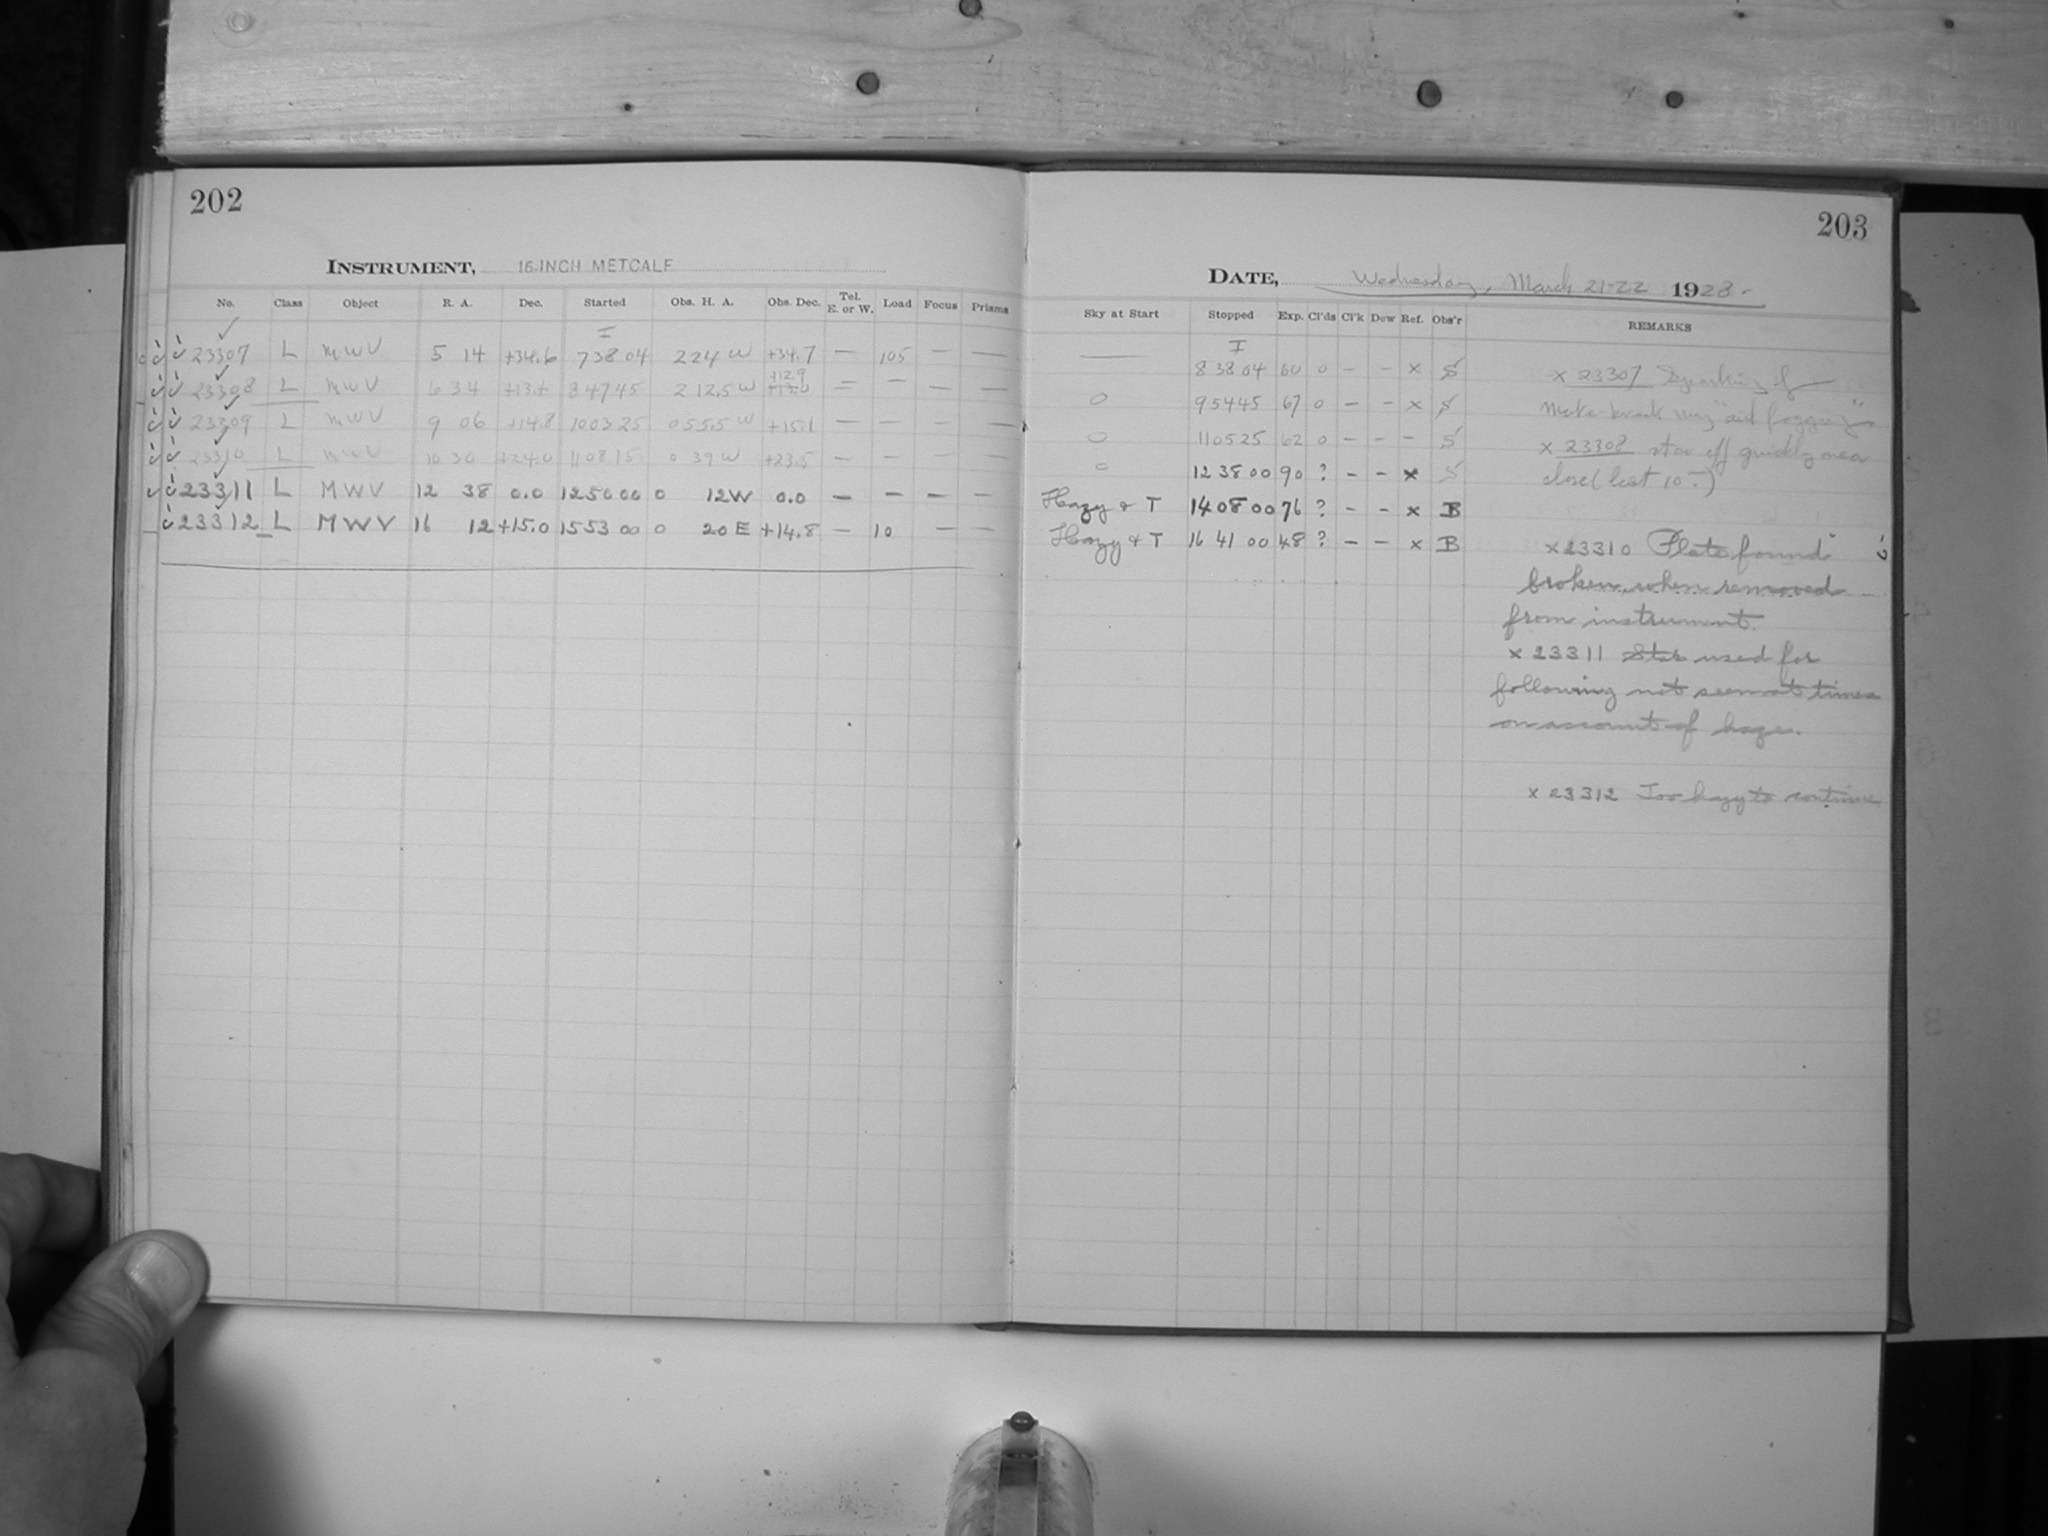 202
INSTRUMENT, 16-INCH METCALF
No. Class Object R. A. Dec. Started Obs. H. A. Obs. Dec. Tel. E. or W. Load Focus Prisms
I
23307 L MWV 5 14 +34.6 7 38 04 2 24 W +34.7 — 105 — —
23308 L MWV 6 34 8 47 45 2 12.5 W +12.9 — — — —
23309 L MWV 9 06 +14.8 10 03 25 0 55.5 W +15.1 — — — —
23310 L MWV 10 30 +24.0 11 08 15 0 39 W +23.5 — — — —
23311 L MWV 12 38 0.0 12 50 00 0 12 W 0.0 — — — —
23312 L MWV 16 12 +15.0 15 53 00 0 20 E +14.8 — 10 — —
203
DATE, Wednesday, March 21-22 1928.
Sky at Start Stopped Exp. Cl'ds Cl'k Dew Ref. Obs'r REMARKS
I
— 8 38 04 60 0 — — x S
0 9 54 45 67 0 — — x S
0 11 05 25 62 0 — — — S
0 12 38 00 90 ? — — x S
Hazy & T 14 08 00 76 ? — — x B
Hazy & T 16 41 00 48 ? — — x B
x 23307 Sparking of
make-break may "aid fogging"
x 23308 star off quickly near
close (last 10
x 23310 Plate found
broken, when removed
from instrument.
x 23311 Star used for
following not seen at times
on account of haze.
x 23312 Too hazy to continue